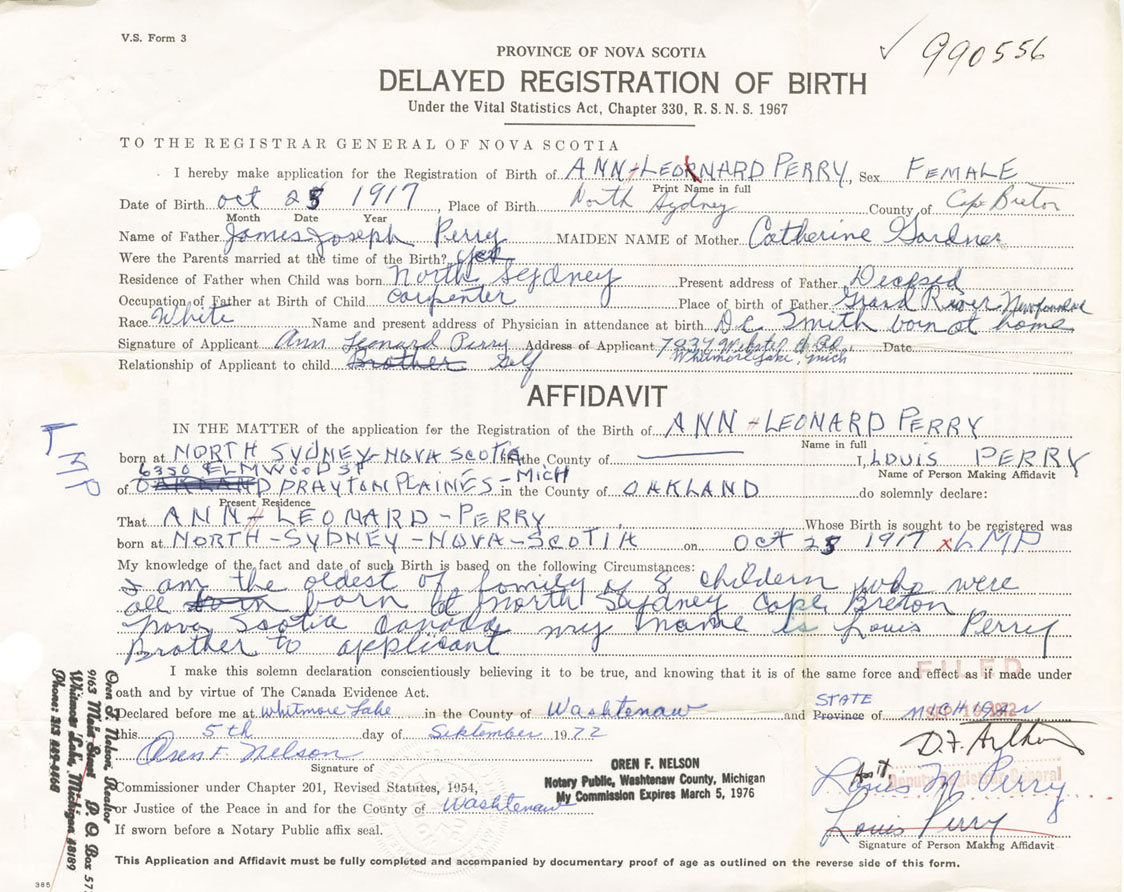 V.S. Form 3
✓ 990556
PROVINCE OF NOVA SCOTIA
DELAYED REGISTRATION OF BIRTH
Under the Vital Statistics Act, Chapter 330, R. S. N. S. 1967
TO THE REGISTRAR GENERAL OF NOVA SCOTIA
I hereby make application for the Registration of Birth of ANN LEONARD PERRY, Sex FEMALE
Print Name in full
Date of Birth oct 25 1917, Place of Birth North Sydney County of Cape Breton
Month Date Year
Name of Father James Joseph Perry MAIDEN NAME of Mother Catherine Gardner
Were the Parents married at the time of the Birth? yes
Residence of Father when Child was born North Sydney Present address of Father Decesed
Occupation of Father at Birth of Child carpenter Place of birth of Father Grand River Newfoundland
Race White Name and present address of Physician in attendance at birth Smith born at home
Signature of Applicant Ann Leonard Perry Address of Applicant Webster Rd. Date
Whitmore Lake, Mich
Relationship of Applicant to child Brother Self
AFFIDAVIT
IN THE MATTER of the application for the Registration of the Birth of ANN LEONARD PERRY
Name in full
born at NORTH SYDNEY-NOVA SCOTIA in the County of I, LOUIS PERRY
Name of Person Making Affidavit
6350 ELMWOOD ST
LMP
of OAKLAND DRAYTON PLAINES - MICH in the County of OAKLAND do solemnly declare:
Present Residence
That ANN LEONARD-PERRY Whose Birth is sought to be registered was
born at NORTH-SYDNEY-NOVA-SCOTIA on OCT 25 1917 x LMP
My knowledge of the fact and date of such Birth is based on the following Circumstances:
I am the oldest of family of 8 childern who were
all born born at North Sydney Cape Breton
Nova Scotia Canada my name is Louis Perry
Brother to applicant
I make this solemn declaration conscientiously believing it to be true, and knowing that it is of the same force and effect as if made under
FILED
oath and by virtue of The Canada Evidence Act.
STATE
Declared before me at Whitmore Lake in the County of Washtenaw and Province of MICHIGAN
this 5th day of September 1972
D.F. Arthur
Oren F. Nelson
Signature of
OREN F. NELSON
Notary Public, Washtenaw County, Michigan
My Commission Expires March 5, 1976
Asst
Deputy Registrar General
Louis M Perry
Commissioner under Chapter 201, Revised Statutes, 1954,
or Justice of the Peace in and for the County of Washtenaw
Louis Perry
Signature of Person Making Affidavit
If sworn before a Notary Public affix seal.
This Application and Affidavit must be fully completed and accompanied by documentary proof of age as outlined on the reverse side of this form.
385
Oren F. Nelson, Realtor
9163 Main Street P. O. Box 57
Whitmore Lake, Michigan 48189
Phone: 313